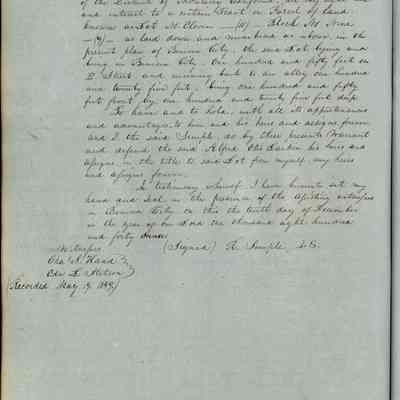 of the District of Monterey California, all my right title
and interest to a certain Tract or Parcel of Land
known as Lot No Eleven —(11)— Block No Nine
—(9)— as laid down and numbered as above, in the
present plan of Benicia City, the said Lot lying and
being in Benicia City. One hundred and fifty feet on
D Street and running back to an alley one hundred
and twenty five feet, being one hundred and fifty
feet front by one hundred and twenty five feet deep.
To have and to hold, with all its appurtenances
and advantages, to him and his heirs and assigns forever
and I the said Semple, do by these presents Warrant
and defend the said Alfred Otis Larkin his heirs and
assigns in the title to said Lot from myself my heirs
and assigns forever.
In testimony whereof I have hereunto set my
hand and seal in the presence of the attesting witnesses
in Benicia City on this the tenth day of December
in the year of our Lord one thousand eight hundred
and forty
Witnesses (Signed) R. Semple, L.S.
Chas. S. Hand
Edw. L. Stetson
(Recorded May 19, 1848)